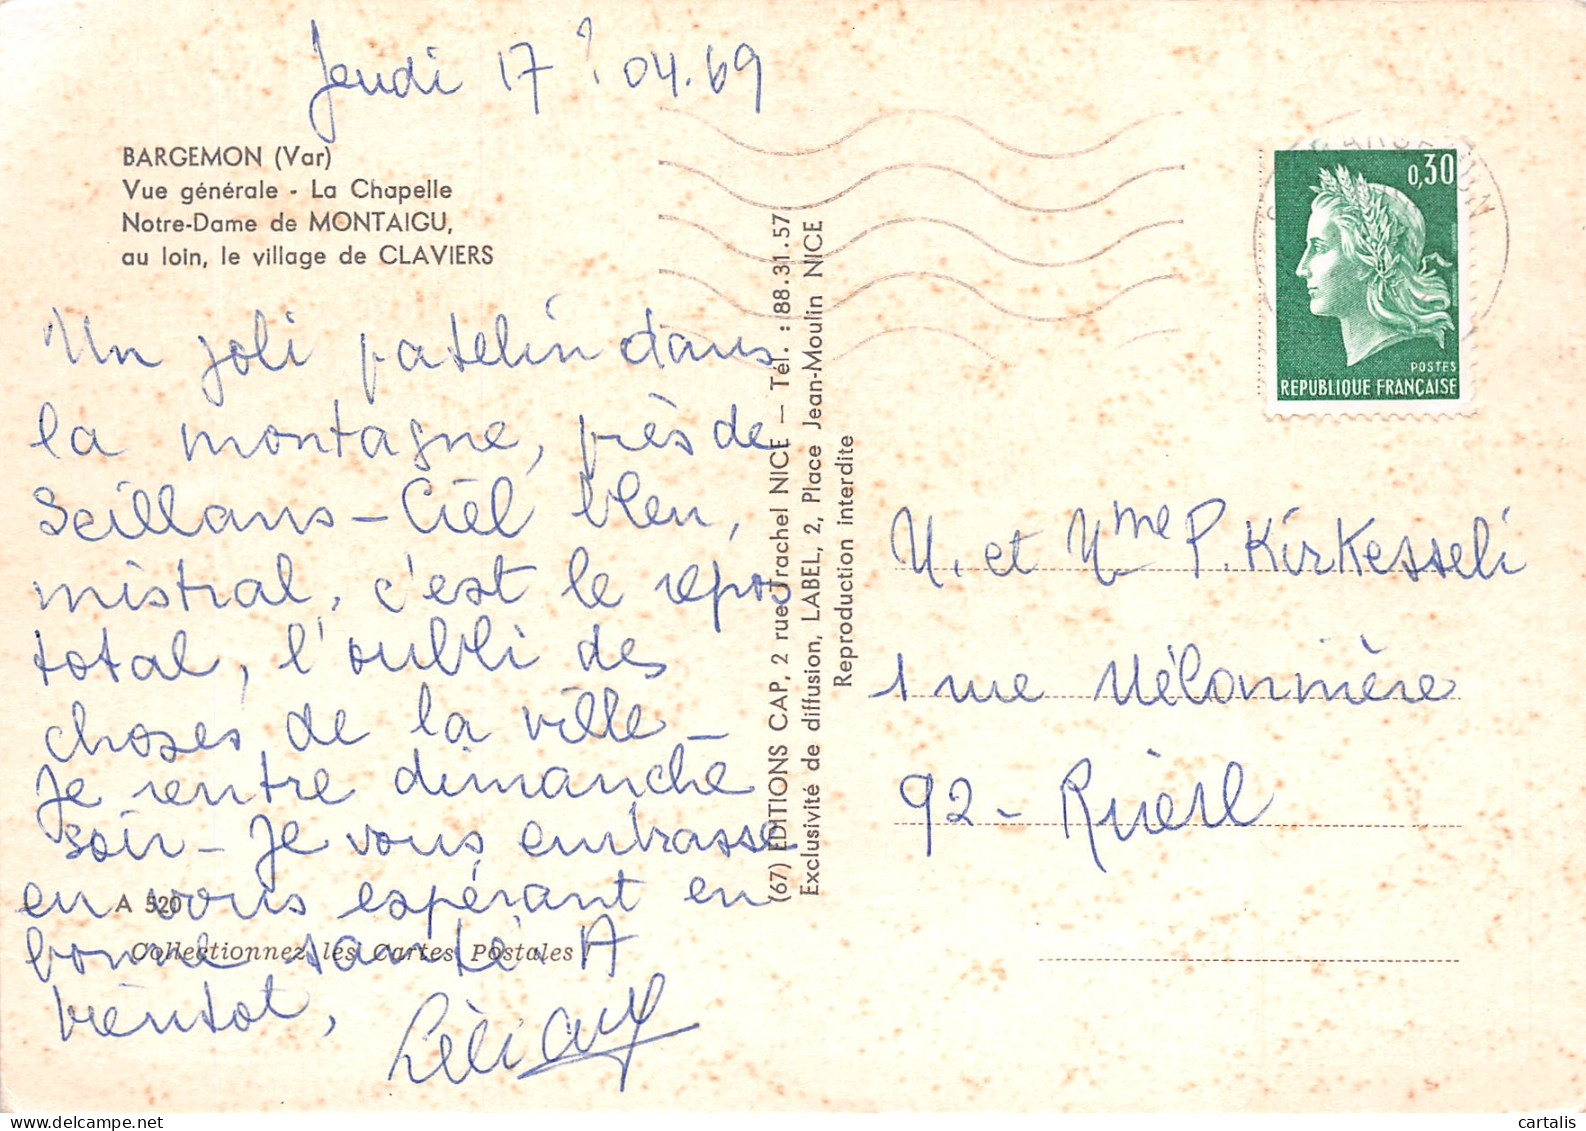 Jeudi 17 ? 04.69
BARGEMON (Var)
Vue générale - La Chapelle
Notre-Dame de MONTAIGU,
au loin, le village de CLAVIERS
Un joli patelin dans
la montagne, près de
Seillans - Ciel bleu,
mistral, c'est le repos
total, l'oubli des
choses de la ville -
Je rentre dimanche
soir - Je vous embrasse
en vous espérant en
bonne santé. A
bientot,
A 520
Collectionnez les Cartes Postales !
(67) EDITIONS CAP, 2 rue Trachel NICE — Tél. : 88.31.57
Exclusivité de diffusion, LABEL, 2, Place Jean-Moulin NICE
Reproduction interdite
0,30
POSTES
REPUBLIQUE FRANÇAISE
M. et Mme P. Kirkesseli
1 rue Mélonnière
92 - Rueil
cartalis